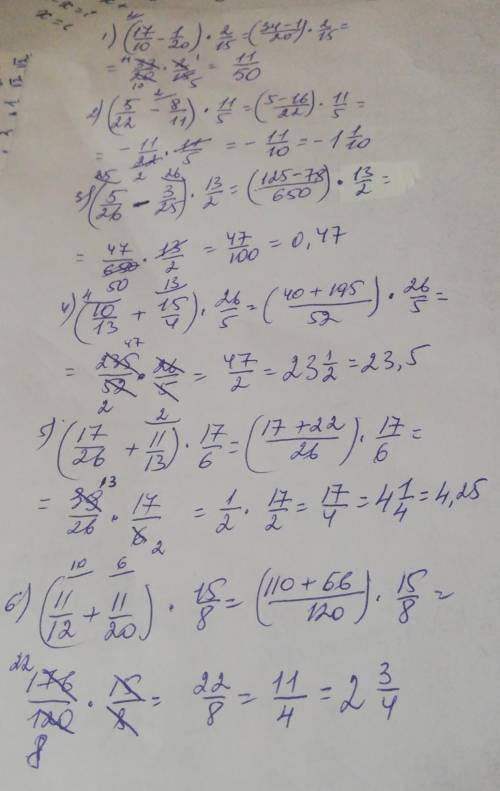 1) (17/10 - 1/20) · 2/15 = (34-1/20) · 2/15 =
= 33/20 · 2/15 = 11/50
2) (5/22 - 8/11) · 11/5 = (5-16/22) · 11/5 =
= - 11/22 · 11/5 = - 11/10 = - 1 1/10
3) (5/26 - 3/25) · 13/2 = (125-78/650) · 13/2 =
= 47/650 · 13/2 = 47/100 = 0,47
4) (10/13 + 15/4) · 26/5 = (40+195/52) · 26/5 =
= 235/52 · 26/5 = 47/2 = 23 1/2 = 23,5
5) (17/26 + 11/13) · 17/6 = (17+22/26) · 17/6 =
= 39/26 · 17/6 = 1/2 · 17/2 = 17/4 = 4 1/4 = 4,25
6) (11/12 + 11/20) · 15/8 = (110+66/120) · 15/8 =
176/120 · 15/8 = 22/8 = 11/4 = 2 3/4